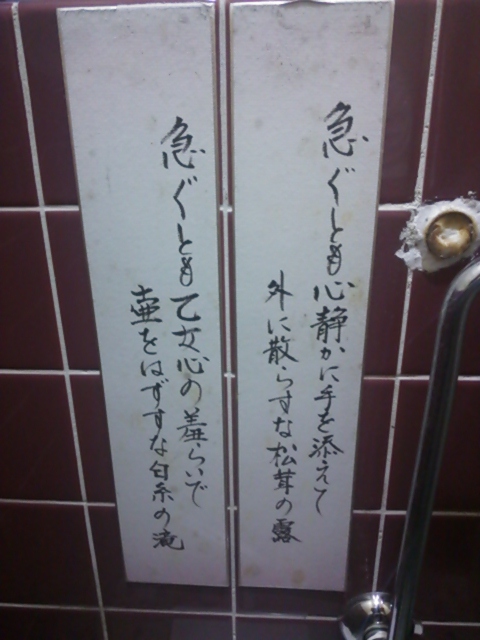 急ぐとも心静かに手を添えて
外に散らすな松茸の露
急ぐとも乙女心の羞らいで
壷をはずすな白糸の滝